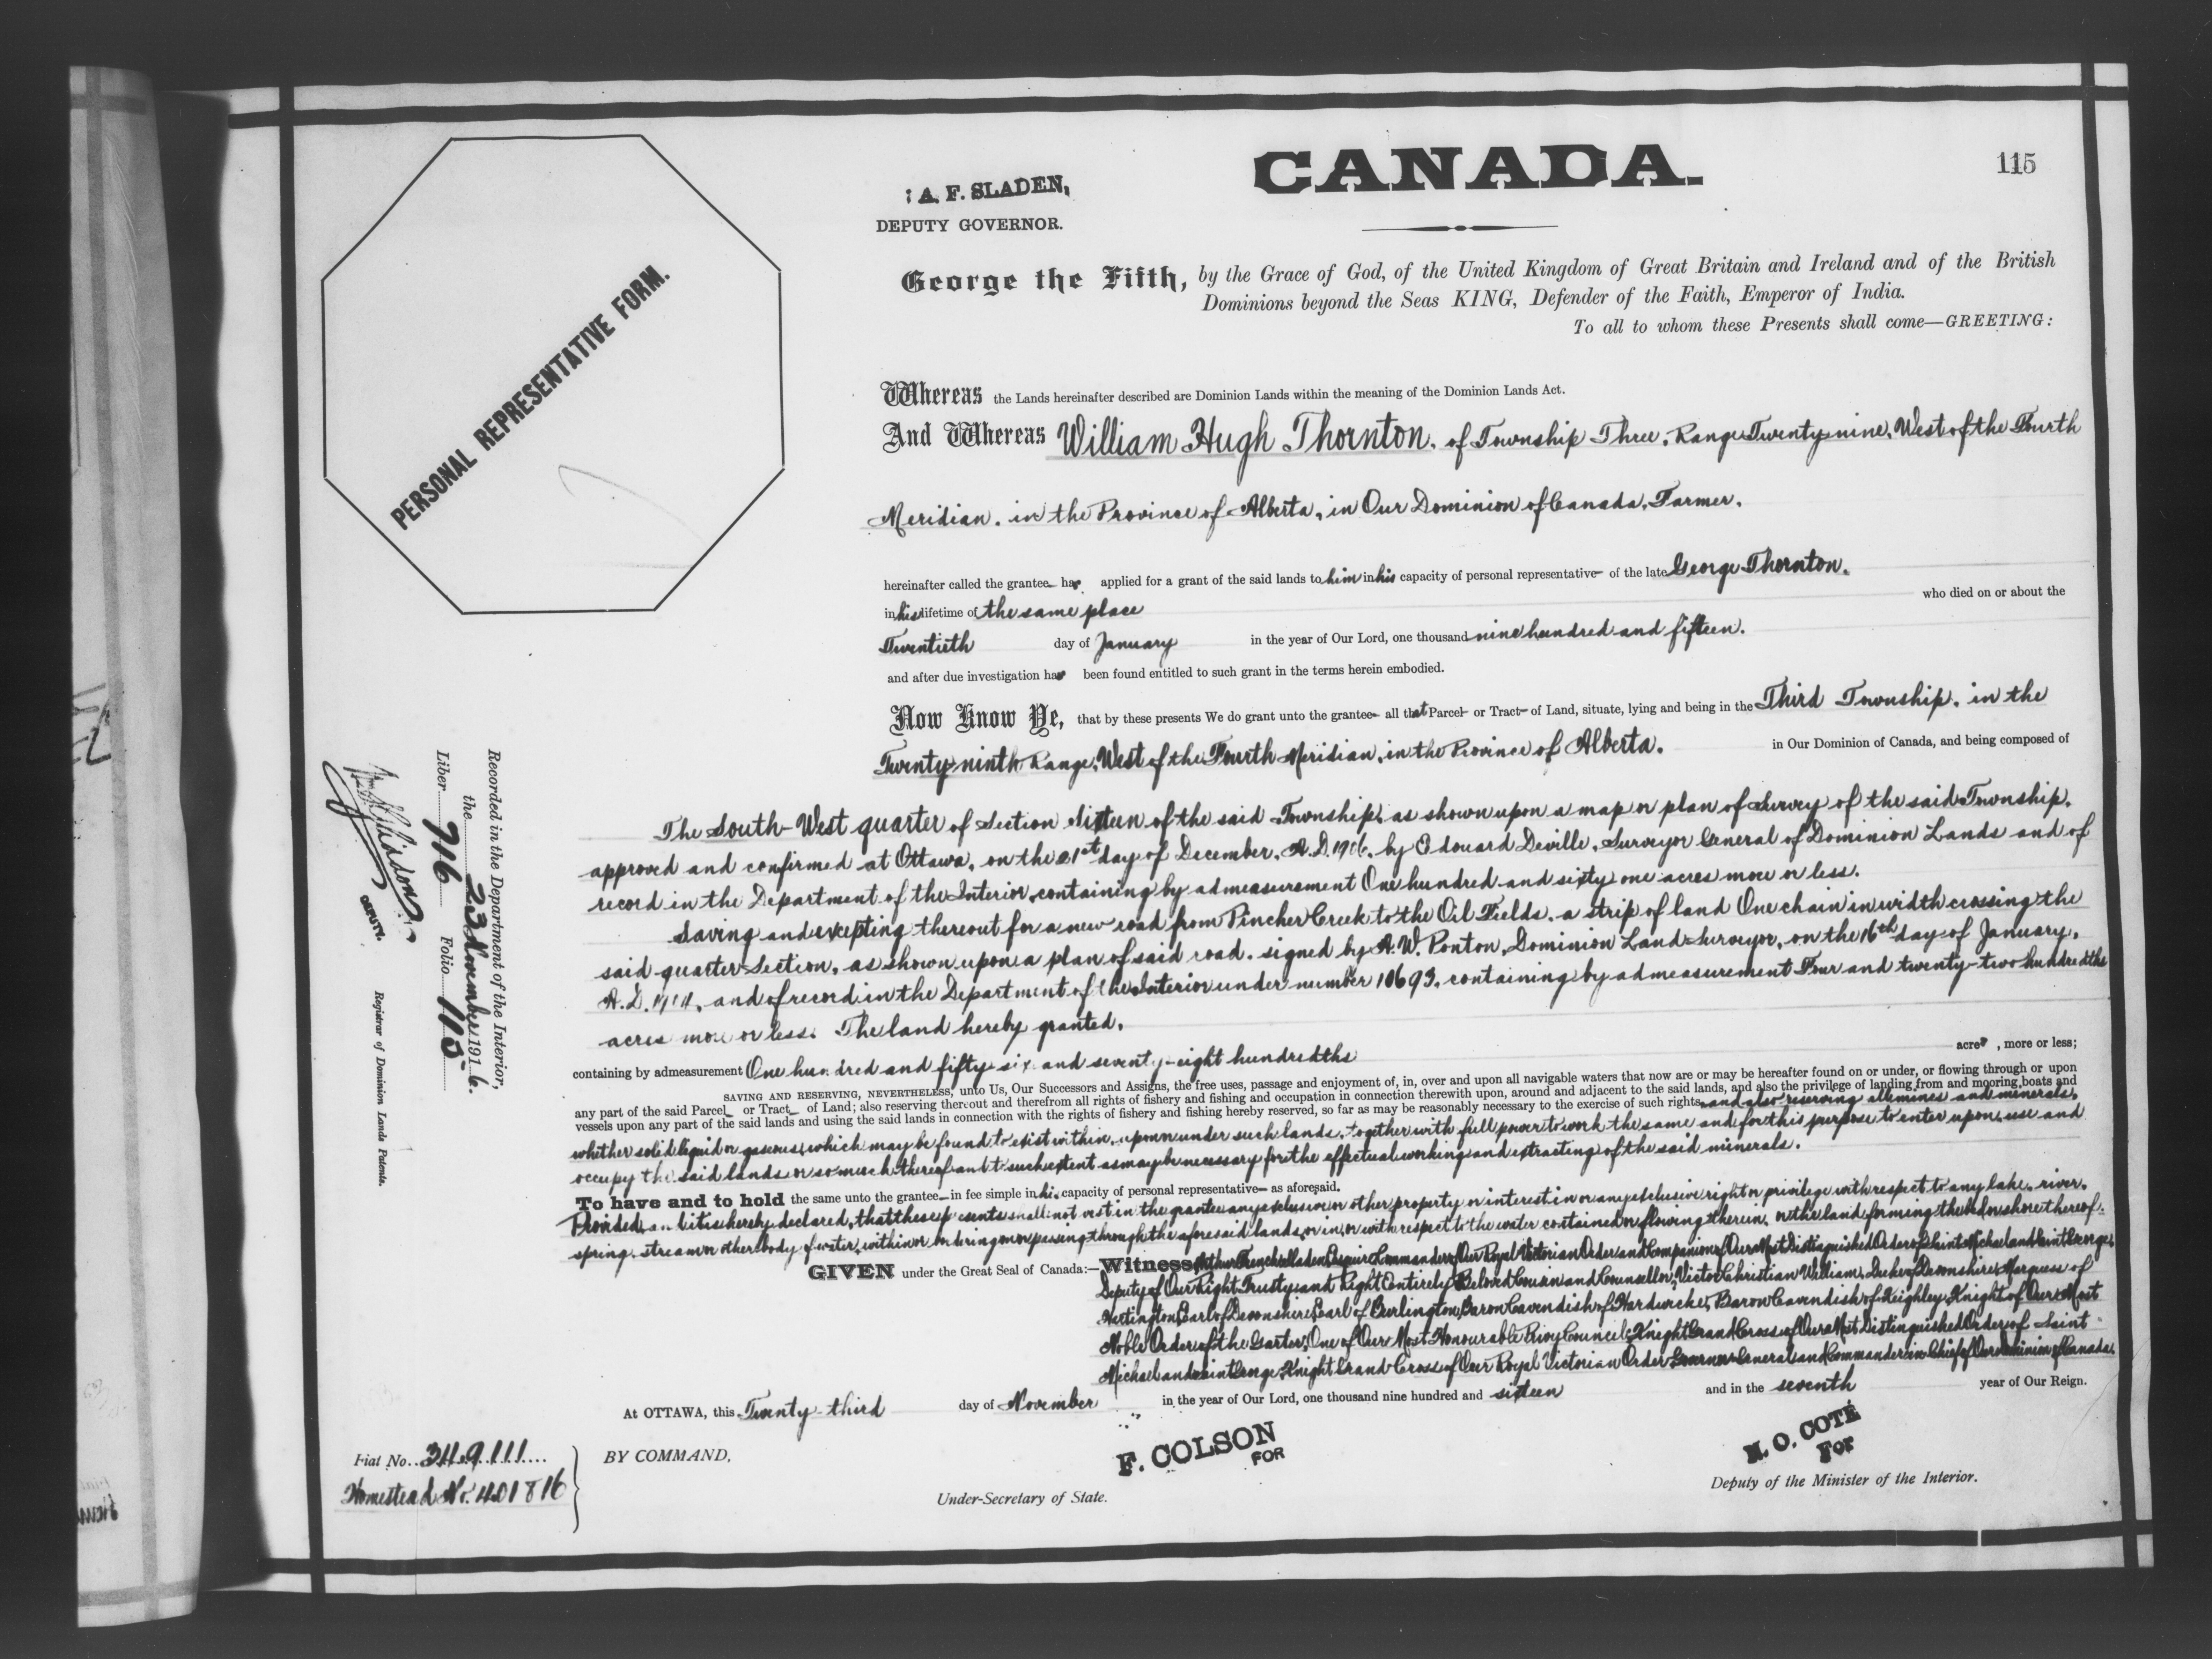 CANADA.
115
A. F. SLADEN,
DEPUTY GOVERNOR.
George the Fifth, by the Grace of God, of the United Kingdom of Great Britain and Ireland and of the British
Dominions beyond the Seas KING, Defender of the Faith, Emperor of India.
To all to whom these Presents shall come—GREETING:
PERSONAL REPRESENTATIVE FORM.
Whereas the Lands hereinafter described are Dominion Lands within the meaning of the Dominion Lands Act.
And Whereas William Hugh Thornton, of Township Three, Range Twenty-nine, West of the Fourth
Meridian, in the Province of Alberta, in Our Dominion of Canada, Farmer.
hereinafter called the grantee has applied for a grant of the said lands to him in his capacity of personal representative of the late George Thornton,
in his lifetime of the same place who died on or about the
Twentieth day of January in the year of Our Lord, one thousand nine hundred and fifteen.
and after due investigation has been found entitled to such grant in the terms herein embodied.
Now Know Ye, that by these presents We do grant unto the grantee all that Parcel or Tract of Land, situate, lying and being in the Third Township, in the
Twenty-ninth Range, West of the Fourth Meridian, in the Province of Alberta. in Our Dominion of Canada, and being composed of
The South-West quarter of Section Sixteen of the said Township, as shown upon a map or plan of Survey of the said Township,
approved and confirmed at Ottawa, on the 21st day of December, A.D. 1906, by Edouard Deville, Surveyor General of Dominion Lands and of
record in the Department of the Interior, containing by admeasurement One hundred and sixty one acres more or less.
Saving and excepting thereout for a new road from Pincher Creek to the Oil Fields, a strip of land One chain in width crossing the
said quarter-Section, as shown upon a plan of said road, signed by A. W. Ponton, Dominion Land Surveyor, on the 16th day of January,
A.D. and of record in the Department of the Interior under number 10693, containing by admeasurement Four and twenty-two hundredths
acres more or less. The land hereby granted,
containing by admeasurement One hundred and fifty-six and seventy-eight hundredths acres, more or less;
SAVING AND RESERVING, NEVERTHELESS, unto Us, Our Successors and Assigns, the free uses, passage and enjoyment of, in, over and upon all navigable waters that now are or may be hereafter found on or under, or flowing through or upon
any part of the said Parcel or Tract of Land; also reserving thereout and therefrom all rights of fishery and fishing and occupation in connection therewith upon, around and adjacent to the said lands, and also the privilege of landing from and mooring boats and
vessels upon any part of the said lands and using the said lands in connection with the rights of fishery and fishing hereby reserved, so far as may be reasonably necessary to the exercise of such rights, and also reserving all mines and minerals,
whether solid liquid or gaseous, which may be found to exist within, upon or under such lands, together with full power to work the same and for this purpose to enter upon, use and
occupy the said lands or so much thereof and to such extent as may be necessary for the effectual working and extracting of the said minerals.
To have and to hold the same unto the grantee in fee simple in his capacity of personal representative as aforesaid.
Provided, and it is hereby declared, that these presents shall not vest in the grantee any exclusive or other property or interest in or any exclusive right or privilege with respect to any lake, river,
spring, stream or other body of water, within or bordering on or passing through the aforesaid lands, or in, or with respect to the water contained or flowing therein, or the land forming the bed or shore thereof.
GIVEN under the Great Seal of Canada:—Witness, Arthur French Sladen, Esquire, Commander of Our Royal Victorian Order and Companion of Our Most Distinguished Order of Saint Michael and Saint George,
Deputy of Our Right Trusty and Right Entirely Beloved Cousin and Counsellor, Victor Christian William, Duke of Devonshire, Marquess of
Hartington, Earl of Devonshire, Earl of Burlington, Baron Cavendish of Hardwicke, Baron Cavendish of Keighley, Knight of Our Most
Noble Order of the Garter; One of Our Most Honourable Privy Council; Knight Grand Cross of Our Most Distinguished Order of Saint
Michael and Saint George, Knight Grand Cross of Our Royal Victorian Order, Governor General and Commander in Chief of Our Dominion of Canada.
At OTTAWA, this Twenty-third day of November in the year of Our Lord, one thousand nine hundred and sixteen and in the seventh year of Our Reign.
BY COMMAND,
F. COLSON
FOR
Under-Secretary of State.
N. O. COTÉ
For
Deputy of the Minister of the Interior.
Fiat No. 349111
Homestead No. 401816
Recorded in the Department of the Interior,
the 23 November 1916.
Liber 716 Folio 115
DEPUTY. Registrar of Dominion Lands Patents.